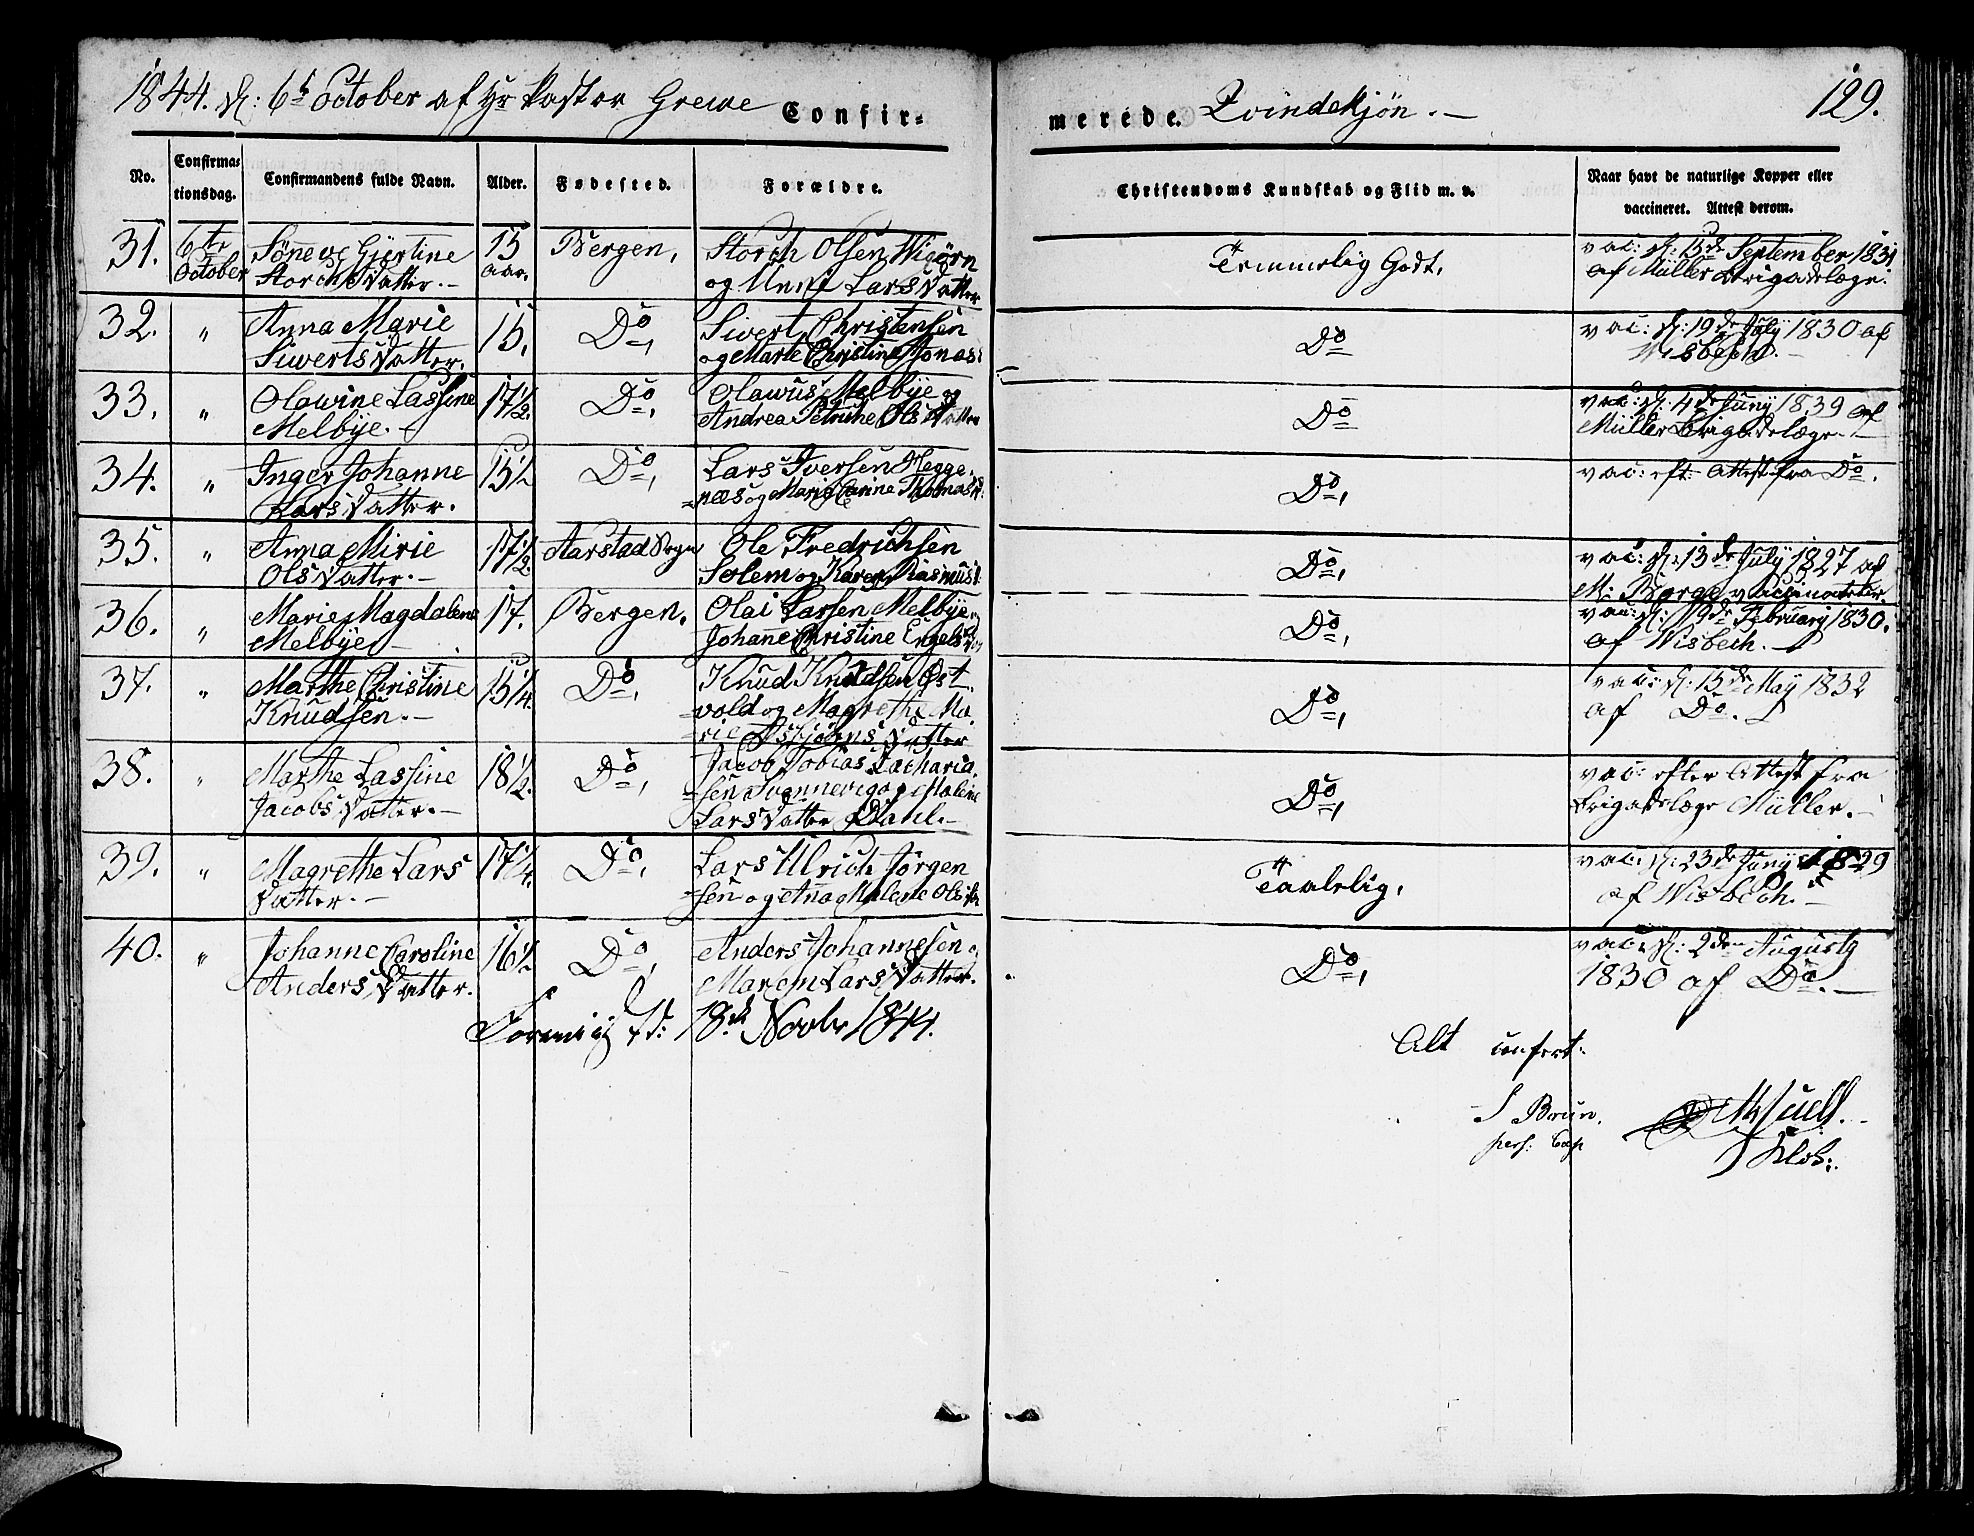 1844. d: 6t October af Hr Pastor Grewe Confir-
merede. Qvindekjøn.
129.
No. Confirma-
tionsdag. Confirmandens fulde Navn. Alder. Fødested. Forældre. Christendoms Kundskab og Flid m. v. Naar havt de naturlige Kopper eller
vaccineret. Attest derom.
31. 6te Søneve Gjertine 15 Bergen, Storch Olsen Wigörn Temmelig Godt, vac: d: 15de September 1831
October Storch Datter. aar. og Unni Lars Datter af Müller Brigadelæge.
32. " Anna Marie 15, Do, Siwert Christensen Do vac: d: 19de July 1830 af
Siwerts Datter. og Marte Christine Jonas: Wisbech.
33. " Olawine Lassine 17½. Do, Olawus Melbye og Do vac: d: 4de Juny 1839 af
Melbye. Andrea Petrine Ols Datter Müller Brigadelæge.
34. " Inger Johanne 15½ Do, Lars Iversen Hegge- Do, vac: eft: Attest fra Do.
Lars Datter. næs og Marie Carine Thomas D:
35. " Anna Mirie 17½ Aarstad Sogn Ole Fredrichsen Do, vac: d: 13de July 1827 af
Ols Datter. Solem og Karen Rasmus D: M. Borge vaccinateur
36. " Marie Magdalene 17. Bergen, Olai Larsen Melbye og Do, vac: d: 19de February 1830.
Melbye Johane Christine Engels af Wisbech.
37. " Marthe Christine 15¼. Do, Knud Knudsen Øst Do, vac: d: 15de May 1832
Knudsen. vold og Magrethe Ma- af Do.
rie Esbjørns Datter
38. " Marthe Lassine 18½. Do, Jacob Tobias Zacharia- Do, vac: efter Attest fra
Jacobs Datter. sen Svannevig og Malene Brigadelæge Müller.
Lars Datter Dahl.
39. " Magrethe Lars 17¼. Do, Lars Ulrich Jörgen Taalelig, vac: d: 23de Juny 1829
Datter. sen og Ana Malene Ols D: af Wisbech.
40. " Johanne Caroline 16½ Do, Anders Johannesen og Do, vac: d: 2den Augusty
Anders Datter. Maren Lars Datter. 1830 af Do.
d: 18de Novbr 1844.
Alt confert:
J Brun,
pers: Cap
Klok: